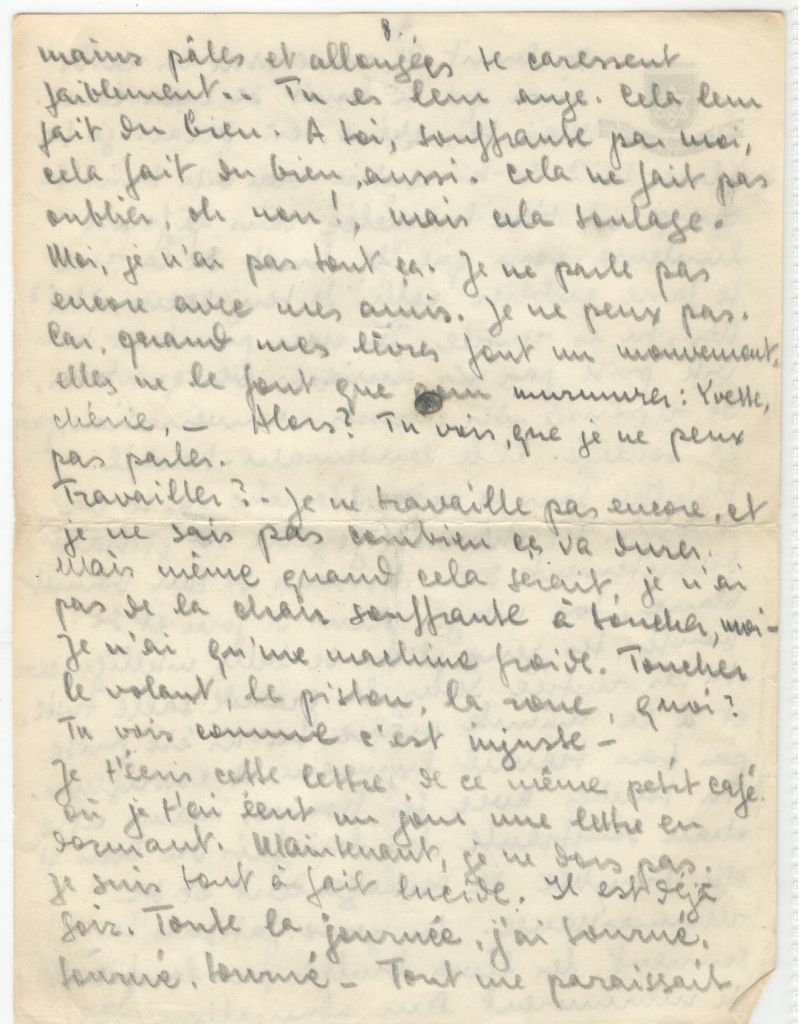 8.
mains pâles et allongées te caressent
faiblement.. Tu es leur ange. Cela leur
fait du bien. A toi, souffrante par moi,
cela fait du bien, aussi. Cela ne fait pas
oublier, oh non!, mais cela soulage.
Moi, je n'ai pas tout ça. Je ne parle pas
encore avec mes amis. Je ne peux pas.
Car, quand mes lèvres font un mouvement,
elles ne le font que pour murmurer: Yvette,
chérie, – Alors? Tu vois, que je ne peux
pas parler.
Travailler?. Je ne travaille pas encore, et
je ne sais pas combien ça va durer.
Mais même quand cela serait, je n'ai
pas de la chair souffrante à toucher, moi –
Je n'ai qu'une machine froide. Toucher
le volant, le piston, la roue, quoi?
Tu vois comme c'est injuste –
Je t'écris cette lettre, de ce même petit café
où je t'ai écrit un jour une lettre en
dormant. Maintenant, je ne dors pas.
Je suis tout à fait lucide. Il est déjà
soir. Toute la journée, j'ai tourné,
tourné, tourné – Tout me paraissait